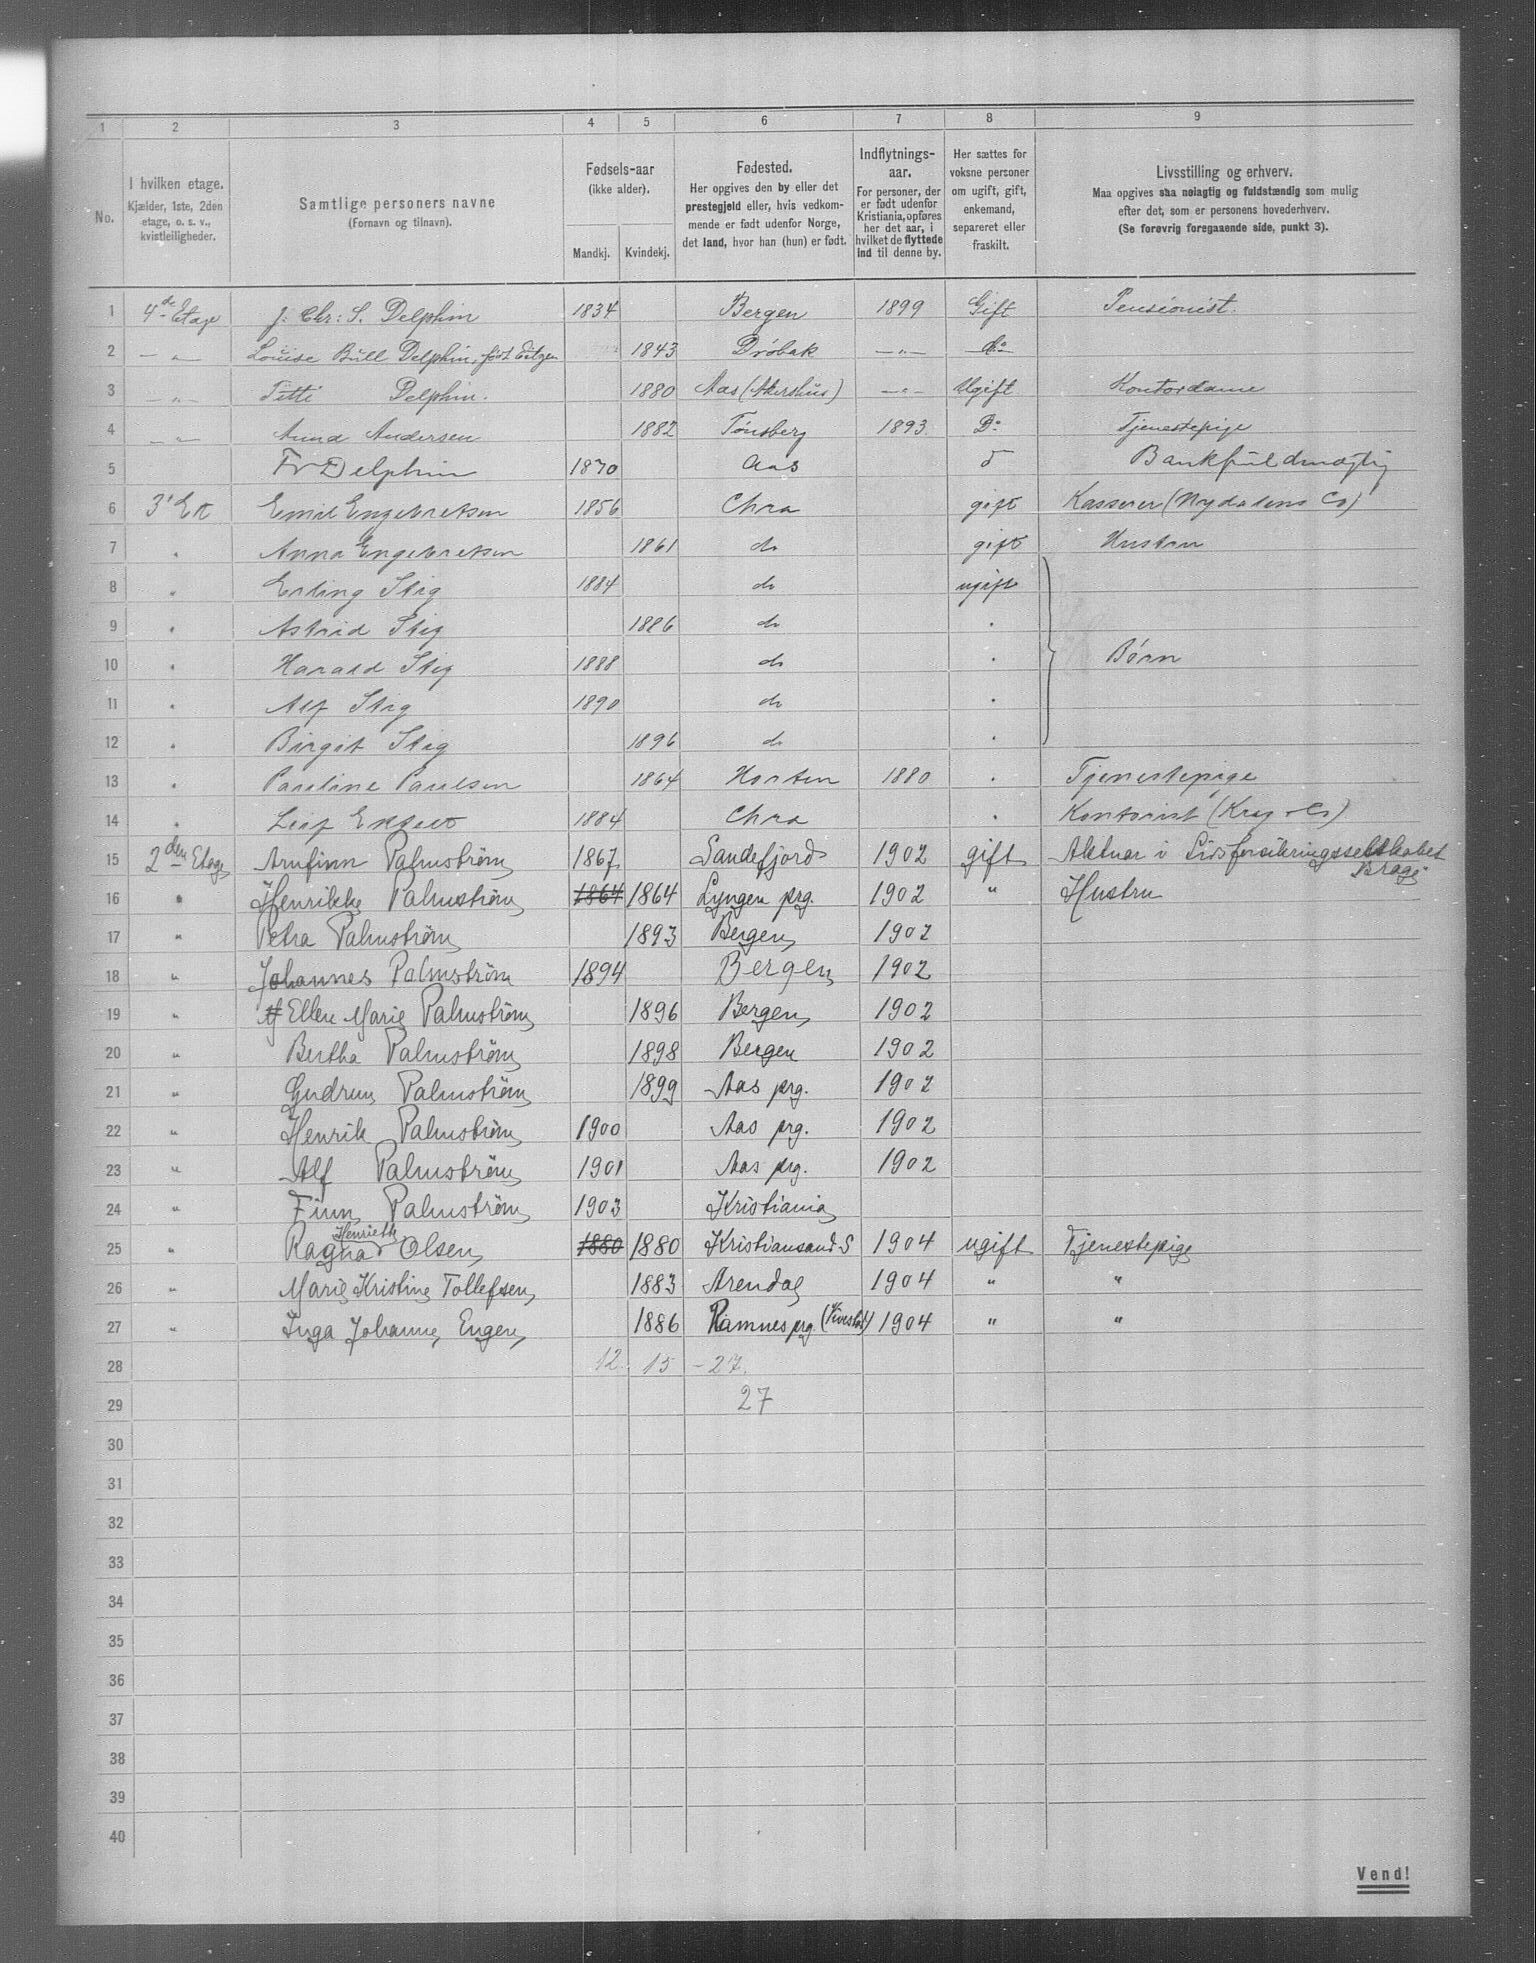 1 2 3 4 5 6 7 8 9
No.
I hvilken etage.
Kjælder, 1ste, 2den
etage, o. s. v.,
kvistleiligheder.
Samtlige personers navne
(Fornavn og tilnavn).
Fødsels-aar
(ikke alder).
Mandkj. Kvindekj.
Fødested.
Her opgives den by eller det
prestegjeld eller, hvis vedkom-
mende er født udenfor Norge,
det land, hvor han (hun) er født.
Indflytnings-
aar.
For personer, der
er født udenfor
Kristiania, opføres
her det aar, i
hvilket de flyttede
ind til denne by.
Her sættes for
voksne personer
om ugift, gift,
enkemand,
separeret eller
fraskilt.
Livsstilling og erhverv.
Maa opgives saa nøiagtig og fuldstændig som mulig
efter det, som er personens hovederhverv.
(Se forøvrig foregaaende side, punkt 3).
1 4de Etage J. Chr: S. Delphin 1834 Bergen 1899 Gift Pensionist.
2 — „ — Louise Büll Delphin, født 1843 Drøbak — „ — do
3 — „ — Titti Delphin. 1880 Aas (Akershüs) — „ — Ugift Kontordame
4 — „ — Anna Andersen 1882 Tønsberg 1893. Do Tjenestepige
5 Fr Delphin 1870 Aas Bankfuldmægtig
6 3' Et Emil Engebretsen 1856 Chra gift Kasserer (Nydalens Co)
7 " Anna Engebretsen 1861 do gift Hustru
8 " Erling Stig 1884 do ugift
9 " Astrid Stig 1886 do "
10 " Harald Stig 1888 do " Børn
11 " Alf Stig 1890 do "
12 " Birgit Stig 1896 do "
13 " Pauline Paulsen 1864 Horten 1880 " Tjenestepige
14 " Leif 1884 Chra " Kontorist
15 2den Etage Arnfinn Palmström 1867 Sandefjord 1902 gift Aktuar i Livsforsikringsselskabet
Brage
16 " Henrikke Palmström 1864 1864 Lyngen prg. 1902 " Hustru
17 " Petra Palmström 1893 Bergen 1902
18 " Johannes Palmström 1894 Bergen 1902
19 " Ellen Marie Palmström 1896 Bergen 1902
20 " Bertha Palmström 1898 Bergen 1902
21 " Gudrun Palmström 1899 Aas prg. 1902
22 " Henrik Palmström 1900 Aas prg. 1902
23 " Alf Palmström 1901 Aas prg. 1902
24 " Finn Palmström 1903 Kristiania
Henriette
25 " Ragna Olsen 1880 1880 Kristiansand S 1904 ugift Tjenestepige
26 " Marie Kristine Tollefsen 1883 Arendal 1904 " "
27 " Inga Johanne Engen 1886 Ramnes prg 1904 " "
28 12 15 - 27.
29 27
30
31
32
33
34
35
36
37
38
39
40
Vend!